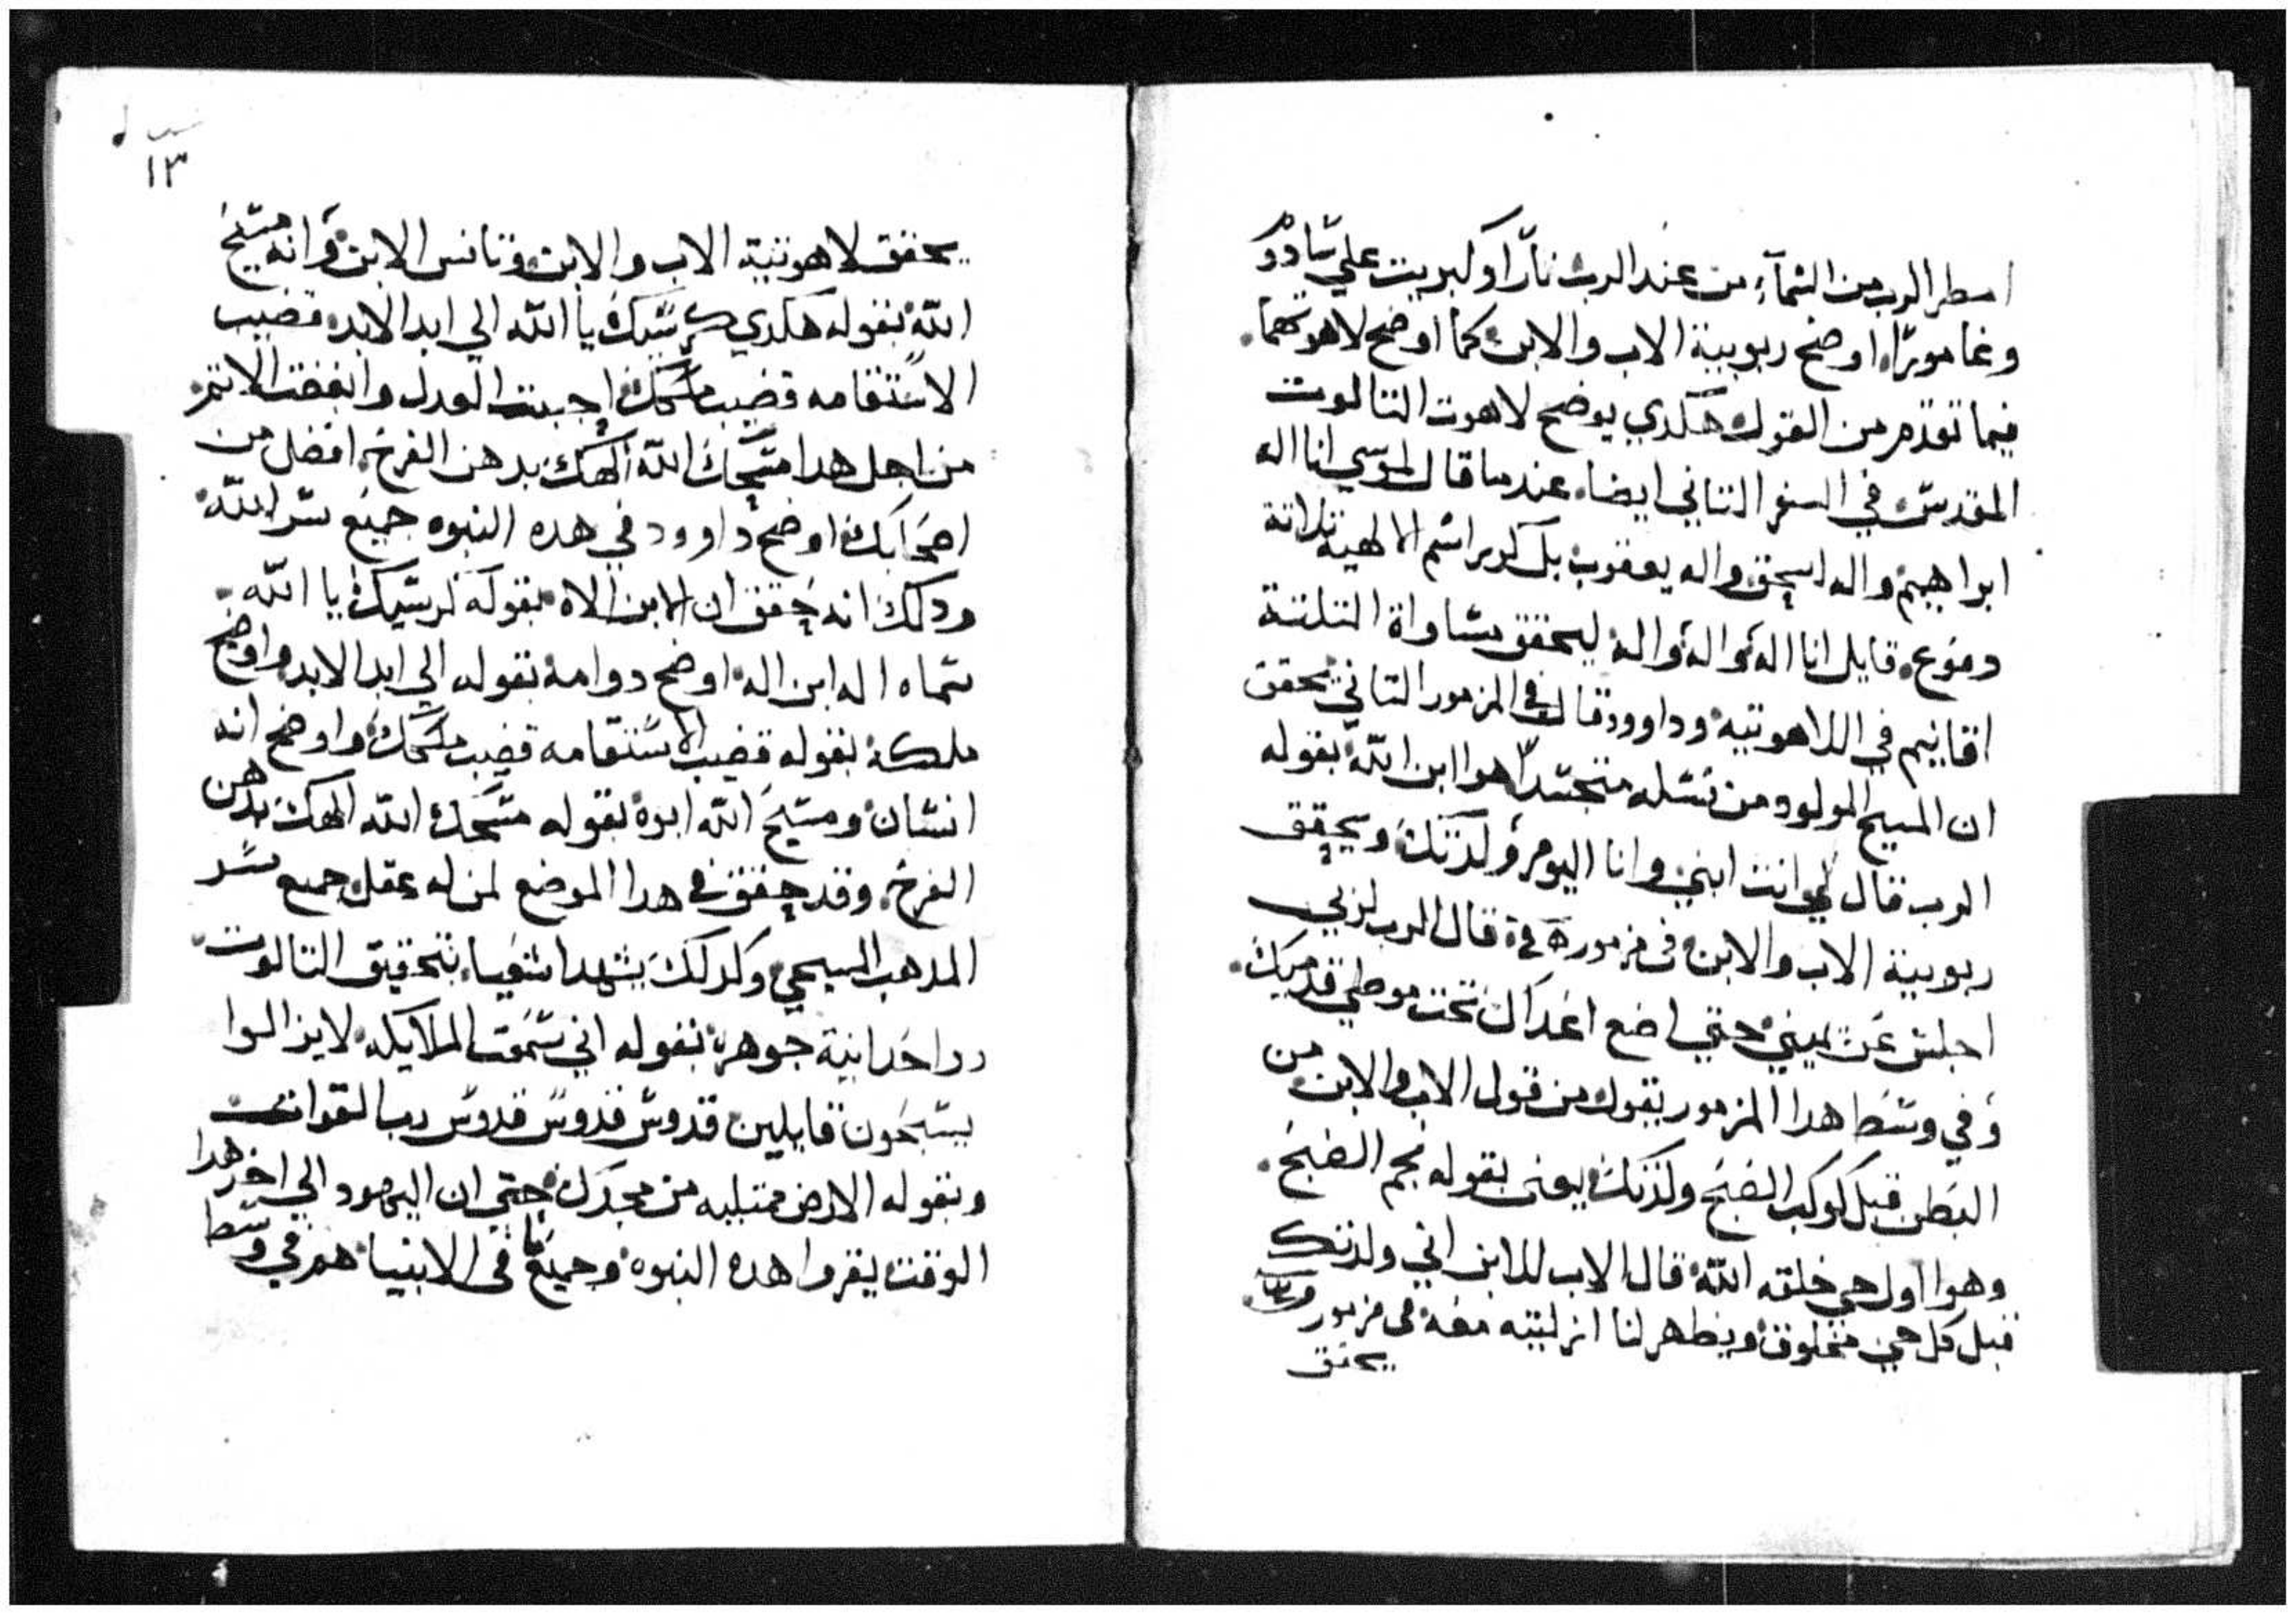 امطر الرب من السمآء من عند الرب نارًا وكبريت علي سادوم
وغامورّا. اوضح ربوبية الاب والابن كما اوضح لاهوتهما.
فيما تقدم من القول هكدي يوضح لاهوت التالوت
المقدس في السفر التاني ايضا. عندما قال لموسي انا اله
ابراهيم واله اسحق واله يعقوب بل كرر اسم الالهية تلاتة
دفوع. قايل انا اله واله واله ليحقق مساواة التلتة
اقانيم في اللاهوتيه وداوود قال في المزمور التاني يحقق
ان المسيح المولود من نسله متجسدًا هوا ابن الله بقوله
الرب قال لي انت ابني وانا اليوم ولدتك ويحقق
ربوبية الاب والابن في مزمور قال الرب لربي
اجلس عن يميني حتي اضع اعداك تحت موطي قدميك.
وفي وسط هدا المزمور يقول من قول الاب والابن من
البطن قبل كوكب الصبح ولدتك يعني بقوله نجم الصبح.
وهوا اول حي خلقه الله قال الاب للابن اني ولدتك
قبل كل حي مخلوق ويظهر لنا ازليته معه في مزمور
يحقق
١٣
يحقق لاهوتية الاب والابن وتانس الابن وانه مسيح
الله بقوله هكدي كرسيك يا الله الي ابد الابد. قضيب
الاستقامه قضيب ملكك احببت العدل وابغضت الاتم.
من اجل هدا مسحك الله الهك بدهن الفرح. افضل من
اصحابك اوضح داوود في هده النبوه جميع سر الله
ودلك انه حقق ان الابن الاه بقوله كرسيك يا الله.
سماه اله ابن اله. اوضح دوامه بقوله الي ابد الابد واوضح
ملكه بقوله قضيب الاستقامه قضيب ملكك واوضح انه
انسان ومسيح الله ابوه بقوله مسحك الله الهك بدهن
الفرح. وقد حقق في هدا الموضع لمن له عقل جميع سر
المدهب المسيحي وكدلك يشهد اشعيا. بتحقيق التالوت.
وواحدانية جوهره بقوله اني سمعت الملايكه لايزالوا
يسبحون قايلين قدوس قدوس قدوس رب القوات
وبقوله الارض ممتليه من مجدك حتي ان اليهود الي اخر هدا
الوقت يقروا هده النبوه وجميع ما في الانبيا هم في وسط